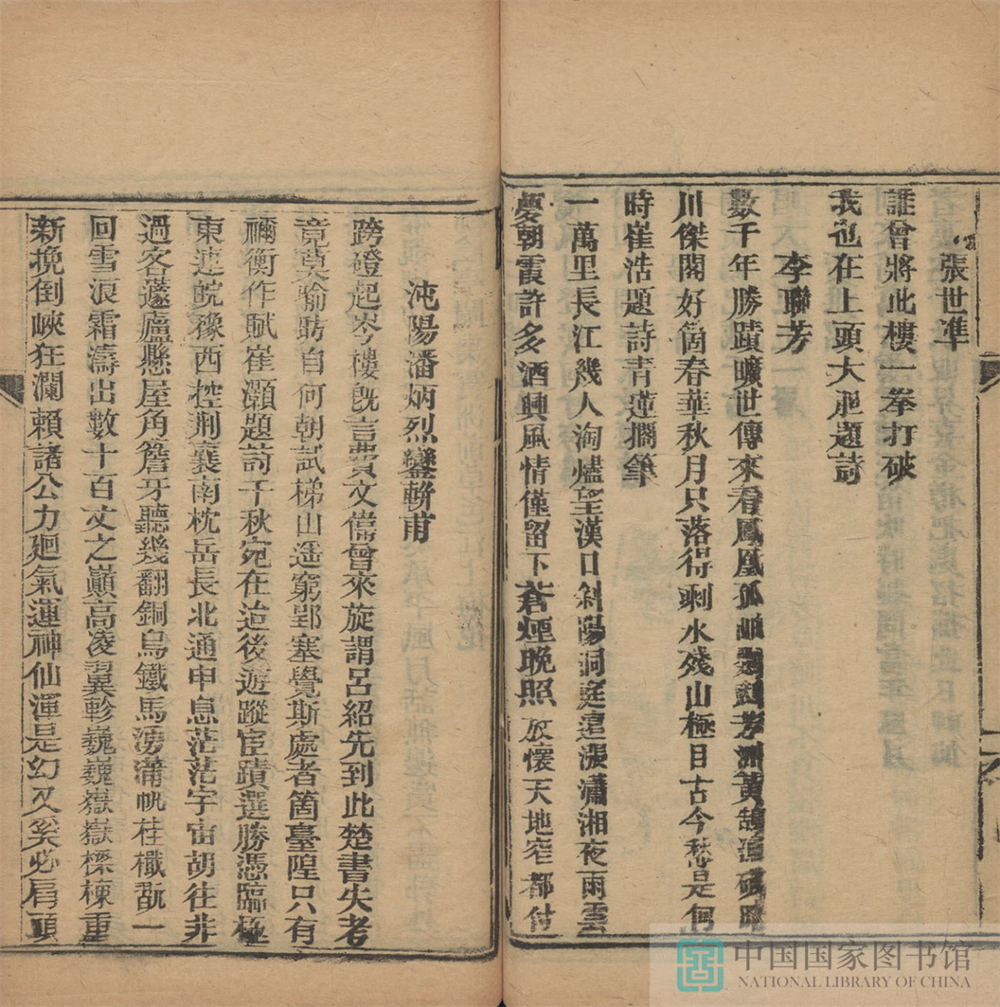 張世準
誰曾將此樓一拳打破
我也在上頭大胆題詩
李聯芳
數千年勝蹟曠世傳來看鳳凰孤岫鸚鵡芳洲黃鵠漁磯晴
川傑閣好箇春華秋月只落得剩水殘山極目古今愁是何
時崔浩題詩青蓮擱筆
一萬里長江幾人淘爐望漢口斜陽洞庭遠漲瀟湘夜雨雲
夢朝霞許多酒興風情僅留下蒼煙晚照放懷天地窄都付
沌陽潘炳烈鑾軿甫
跨磴起岑樓旣言費文偉曾來旋謂呂紹先到此楚書失考
竟莫喻昉自何朝試梯山遥窮郢塞覺斯處者箇臺隍只有
禰衡作賦崔灝題詩千秋宛在迨後遊蹤宦蹟選勝憑臨極
東連皖豫西控荆襄南枕岳長北通申息茫茫宇宙胡往非
過客蘧廬懸屋角簷牙聽幾翻銅烏鐵馬湧蒲帆桂檝翫一
回雪浪霜濤出數十百丈之巔高凌翼軫巍巍嶽嶽樑棟重
新挽倒峽狂瀾賴諸公力廻氣運神仙渾是幻又奚必肩頭
中国国家图书馆
NATIONAL LIBRARY OF CHINA